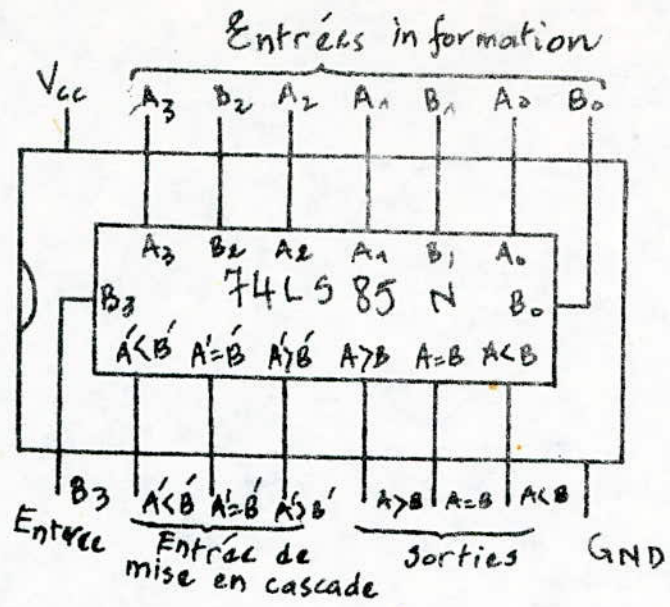 Entrées information
Vcc A3 B2 A2 A1 B1 A0 B0
A3 B2 A2 A1 B1 A0
B3 74LS 85 N B0
A'<B' A'=B' A'>B' A>B A=B A<B
B3 A'<B' A'=B' A'>B' A>B A=B A<B
Entrée Entrée de Sorties GND
mise en cascade